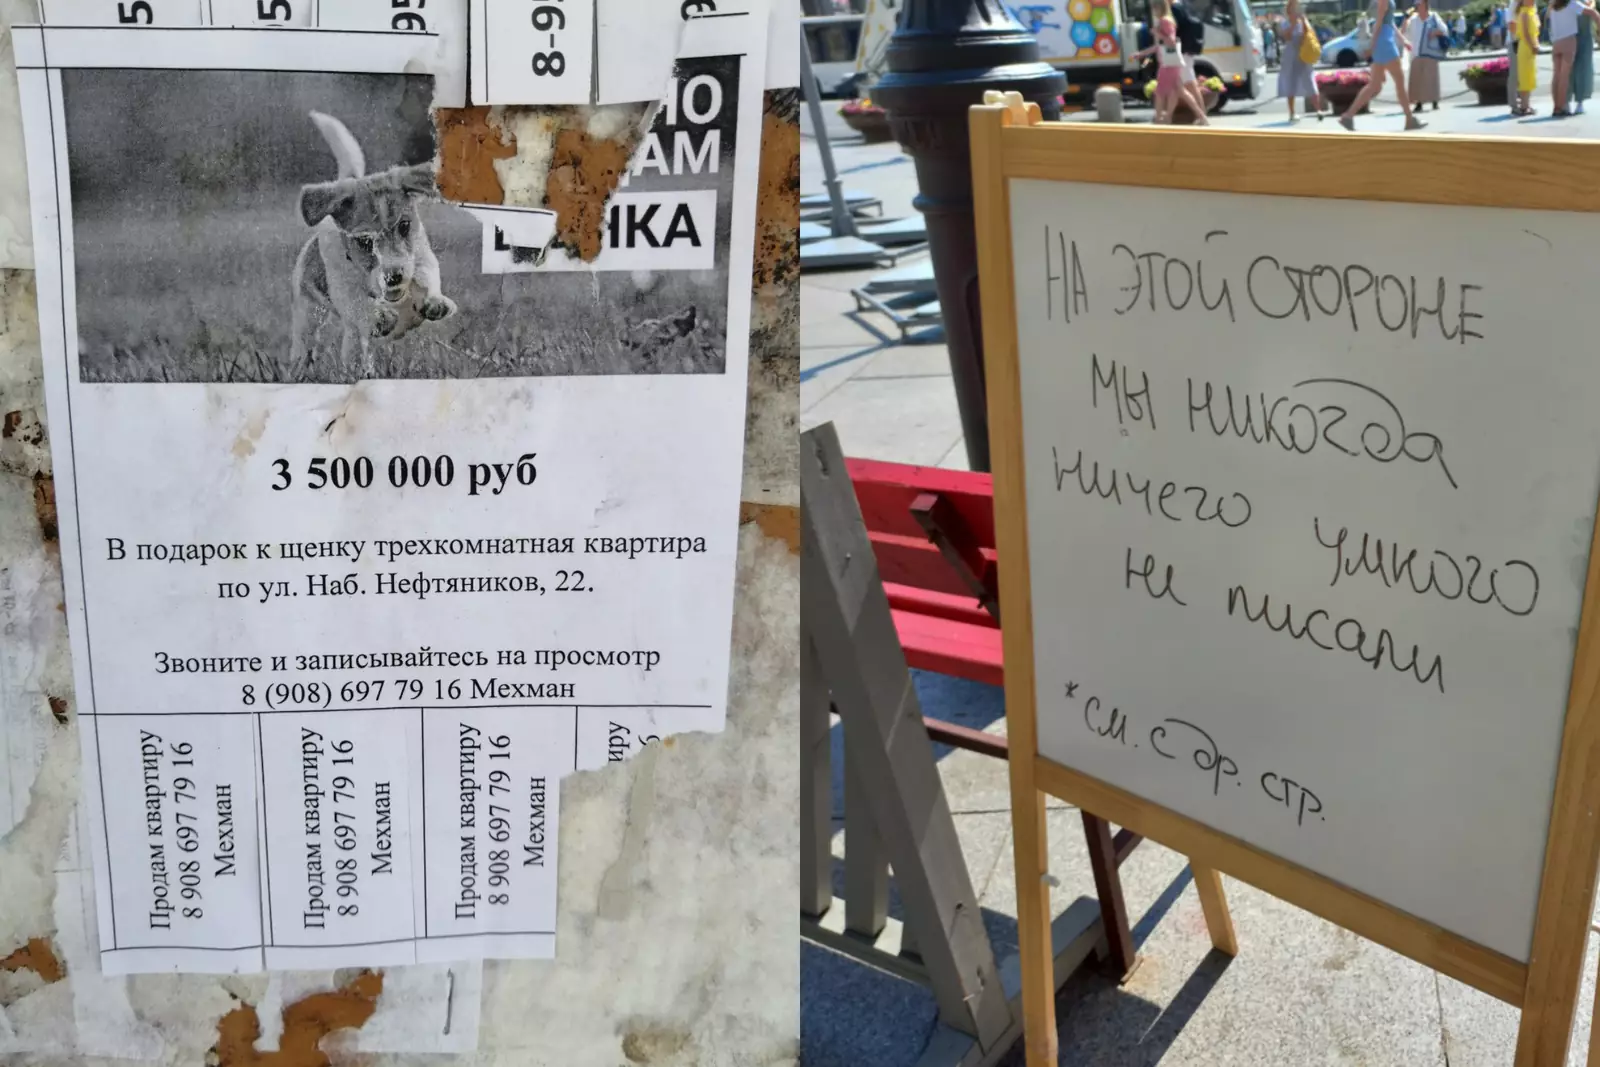 8-95
3 500 000 руб
В подарок к щенку трехкомнатная квартира
по ул. Наб. Нефтяников, 22.
Звоните и записывайтесь на просмотр
8 (908) 697 79 16 Мехман
Продам квартиру
8 908 697 79 16
Мехман
Продам квартиру
8 908 697 79 16
Мехман
Продам квартиру
8 908 697 79 16
Мехман
НА ЭТОЙ СТОРОНЕ
МЫ НИКОГДА
НИЧЕГО УМНОГО
НЕ ПИСАЛИ
*см. с др. стр.